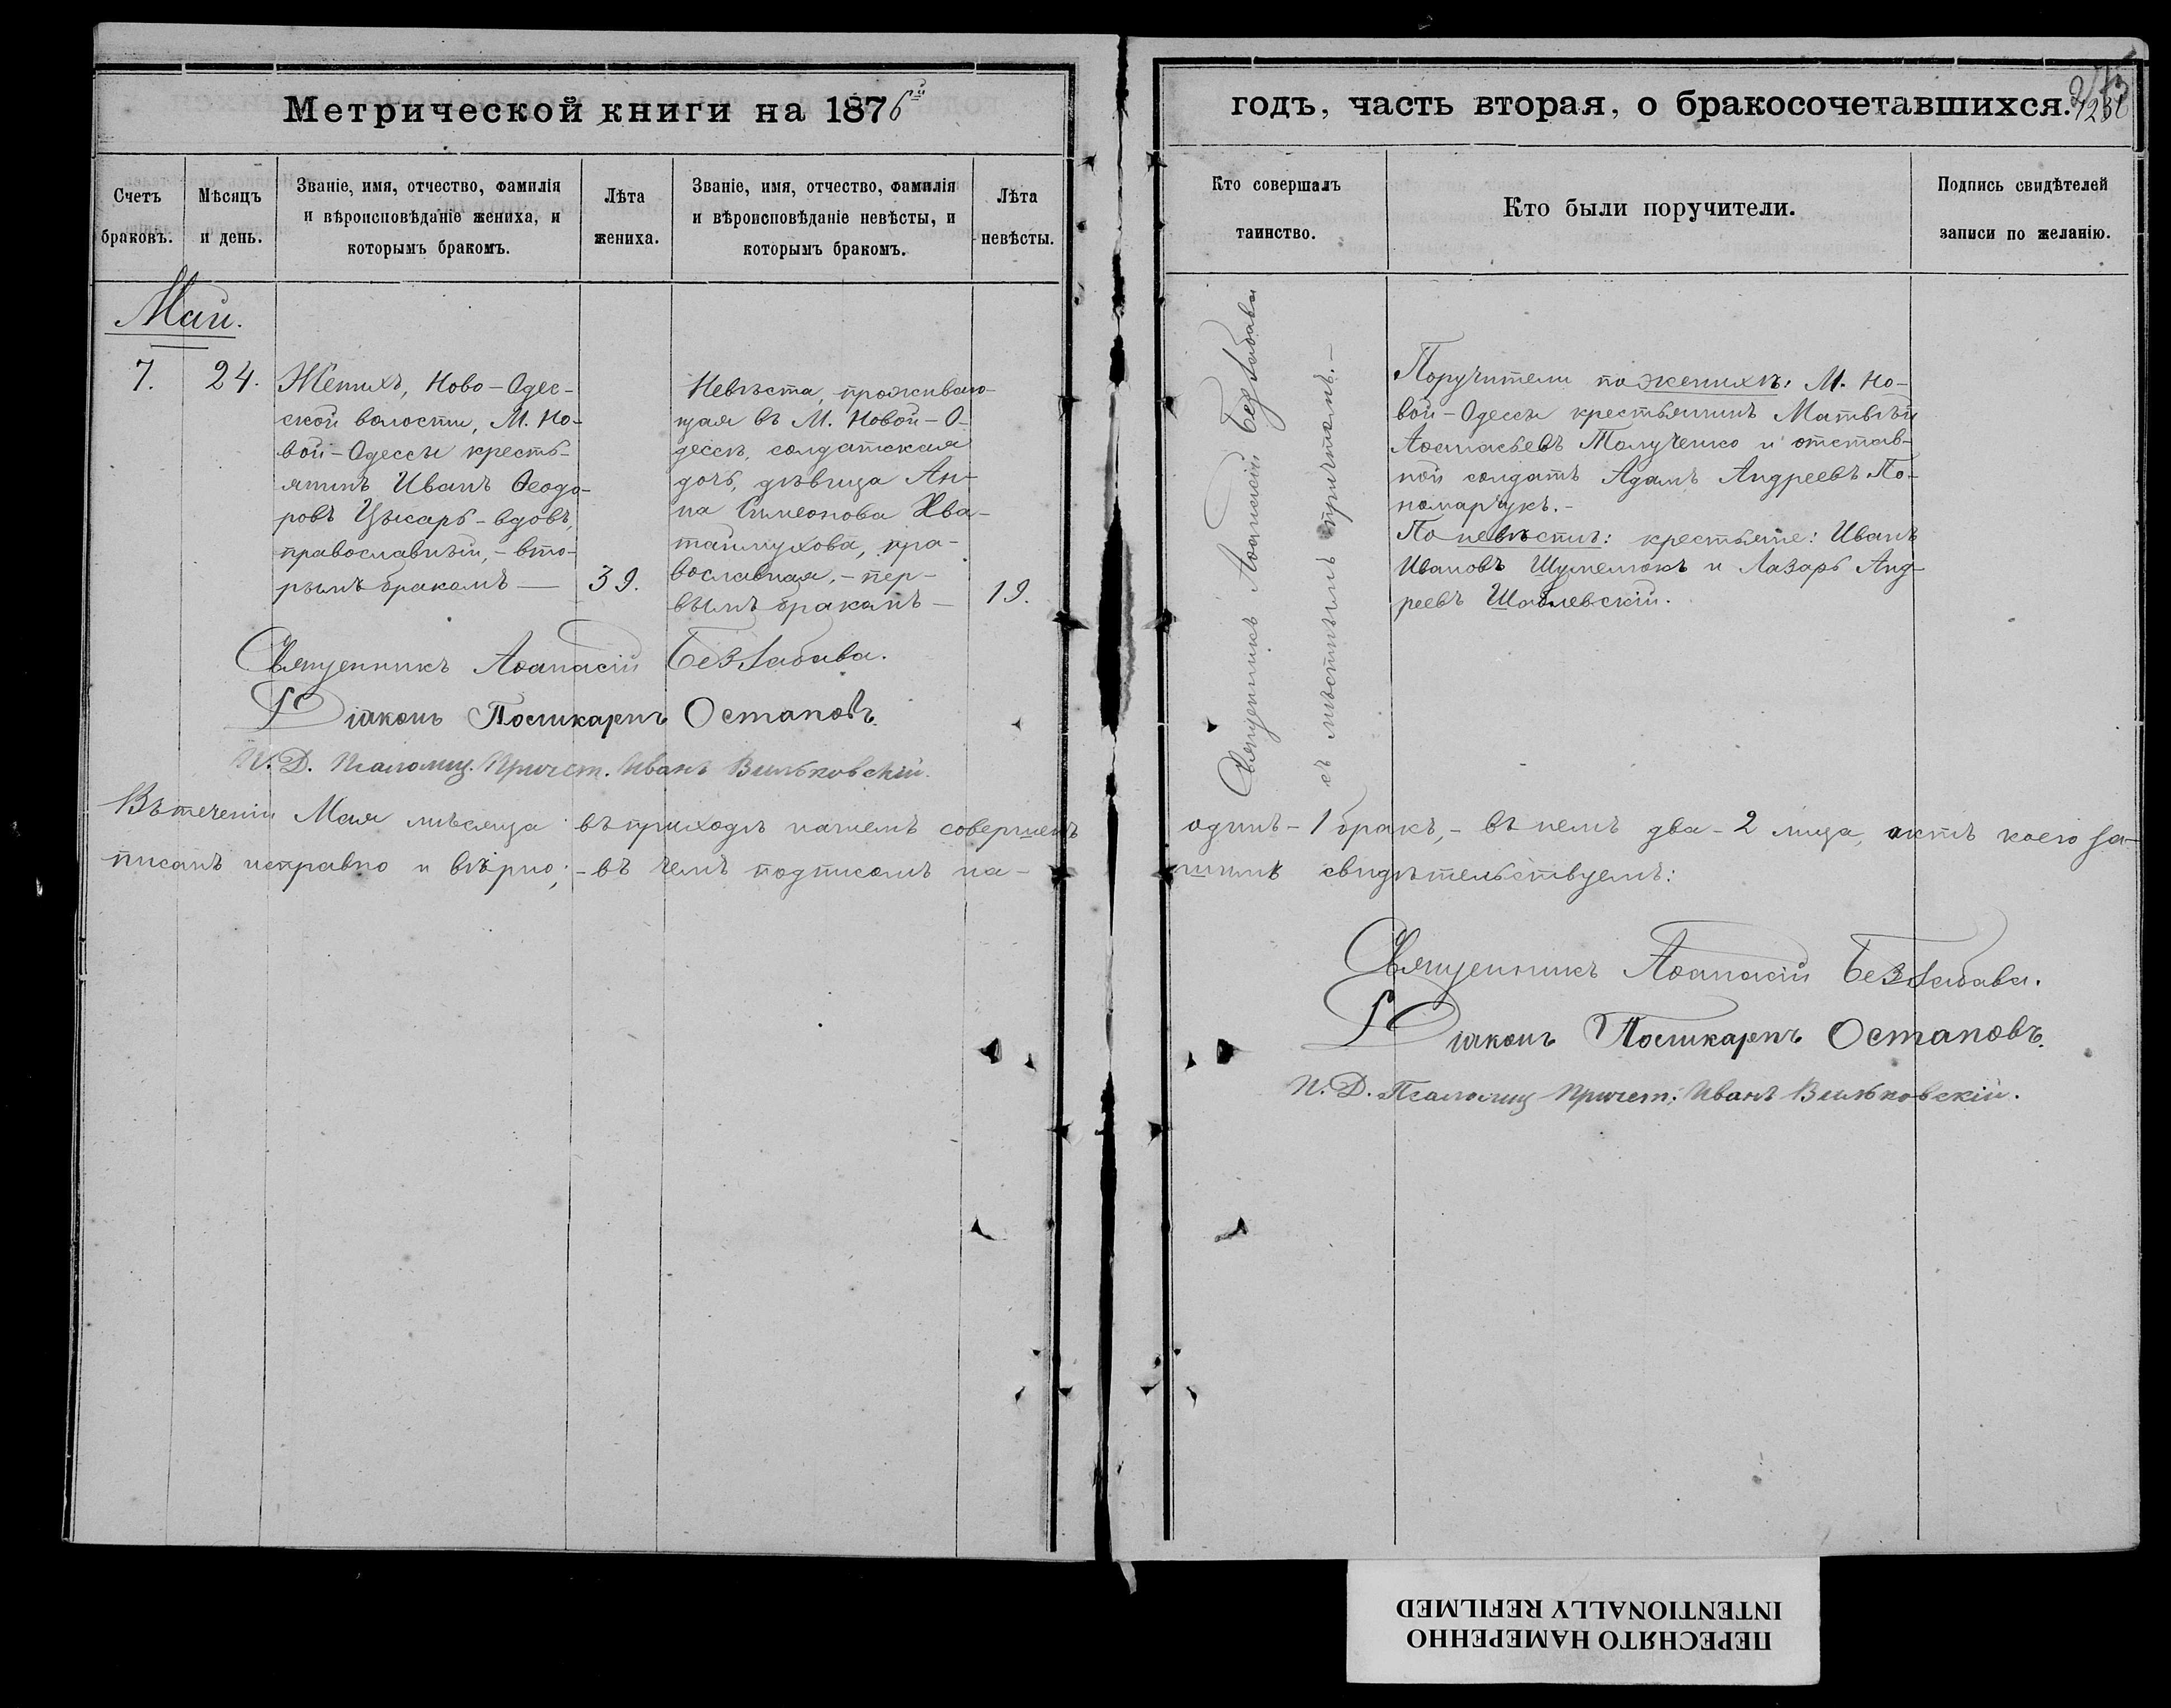 Метрической книги на 1876й
Счетъ браковъ.
Мѣсяцъ и день.
Званіе, имя, отчество, фамилія
и вѣроисповѣданіе жениха, и
которымъ бракомъ.
Лѣта жениха.
Званіе, имя, отчество, фамилія
и вѣроисповѣданіе невѣсты, и
которымъ бракомъ.
Лѣта невѣсты.
Май.
7.
24.
Женихъ, Ново-Одес-
ской волости, М. Но-
вой-Одессы кресть-
янинъ Иванъ Ѳеодо-
ровъ Цысарь-вдовъ,
православный,-вто-
рымъ бракомъ —
39.
Невѣста, проживаю-
щая въ М. Новой-О-
дессѣ, солдатская
дочь, дѣвица Ан-
на Симеонова Хва-
таймухова, пра-
вославная,-пер-
вымъ бракомъ —
19.
Священникъ Аѳанасій Беззабава.
Діаконъ Поликарпъ Остаповъ.
И.Д. Псаломщ. Причет. Иванъ Вильковскій.
Въ теченіи Мая мѣсяца въ приходѣ нашемъ совершенъ
писанъ исправно и вѣрно;-въ чемъ подписомъ на-
годъ, часть вторая, о бракосочетавшихся.
Кто совершалъ
таинство.
Кто были поручители.
Подпись свидѣтелей
записи по желанію.
Священникъ Аѳанасій Беззабава
съ мѣстнымъ причтомъ.—
Поручители по женихѣ: М. Но-
вой-Одессы крестьянинъ Матвѣй
Аѳанасьевъ Толученко и отстав-
ной солдатъ Адамъ Андреевъ По-
номарчукъ.-
По невѣстѣ: крестьяне: Иванъ
Ивановъ Шумелюкъ и Лазарь Анд-
реевъ Шаблевскій.
одинъ-1 бракъ,-въ немъ два-2 лица, актъ коего за-
шимъ свидѣтельствуемъ:
Священникъ Аѳанасій Беззабава.
Діаконъ Поликарпъ Остаповъ.
И.Д. Псаломщ Причет. Иванъ Вильковскій.
ПЕРЕСНЯТО НАМЕРЕННО
INTENTIONALLY REFILMED